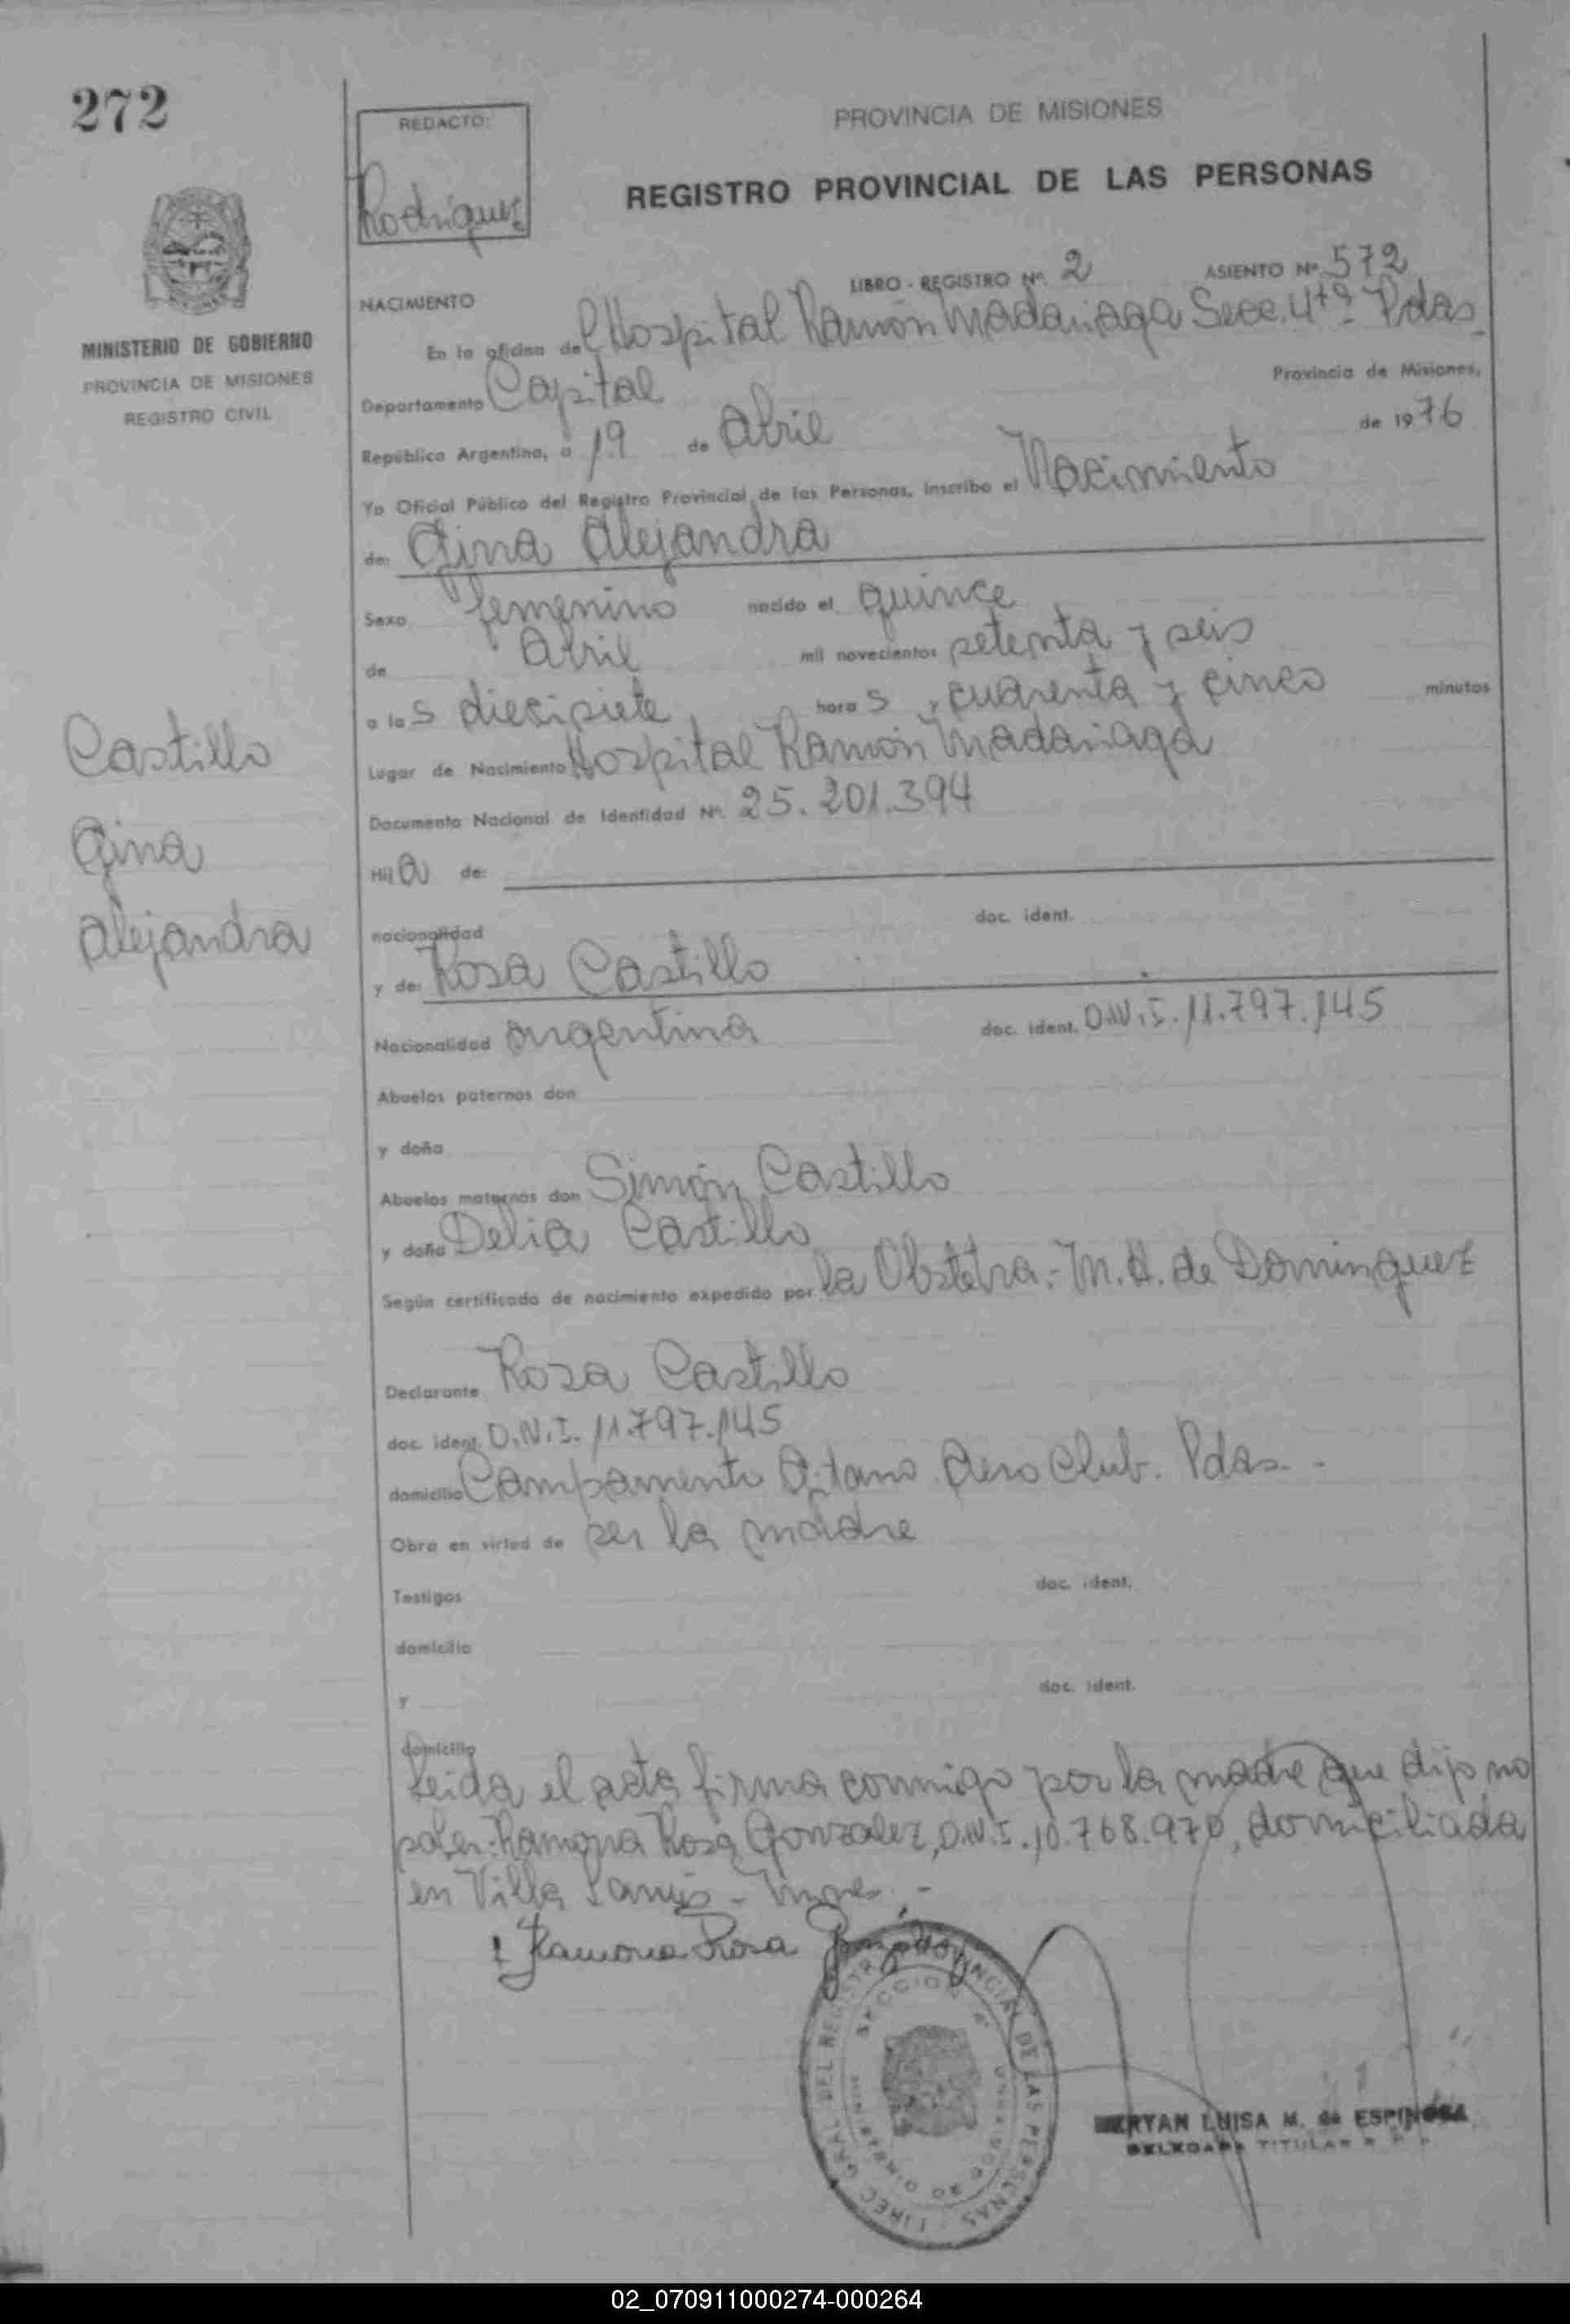 272
REDACTO:
Rodriguez
PROVINCIA DE MISIONES
REGISTRO PROVINCIAL DE LAS PERSONAS
MINISTERIO DE GOBIERNO
PROVINCIA DE MISIONES
REGISTRO CIVIL
LIBRO - REGISTRO Nº. 2 ASIENTO Nº 572
NACIMIENTO
En la oficina del Hospital Ramón Madariaga Secc. 4ta. Pdas.
Departamento Capital Provincia de Misiones,
República Argentina, a 19 de Abril de 1976
Yo Oficial Público del Registro Provincial de las Personas, inscribo el Nacimiento
de: Gina Alejandra
Sexo femenino nacido el quince
de Abril mil novecientos setenta y seis
a las diecisiete horas y cuarenta y cinco minutos
Lugar de Nacimiento Hospital Ramón Madariaga
Documento Nacional de Identidad Nº. 25.201.394
Hija de:
nacionalidad doc. ident.
y de: Rosa Castillo
Nacionalidad argentina doc. ident. D.N.I. 11.797.145
Castillo
Gina
Alejandra
Abuelos paternos don
y doña
Abuelos maternos don Simón Castillo
y doña Delia Castillo
Según certificado de nacimiento expedido por la Obstetra.- M. H. de Dominguez
Declarante Rosa Castillo
doc. ident. D.N.I. 11.797.145
domicilio Campamento Gitano Aero Club. Pdas.-
Obra en virtud de ser la madre
Testigos doc. ident.
domicilio
y doc. ident.
domicilio
Leida el acta firma conmigo por la madre que dijo no
saber: Ramona Rosa Gonzalez, D.N.I. 10.768.970, domiciliada
en Villa
Ramona Rosa Gonzalez
DIREC. GRAL. DEL REGISTRO PROVINCIAL DE LAS PERSONAS
SECCION 4ª
LUISA M. de ESPINOSA
TITULAR
02_070911000274-000264